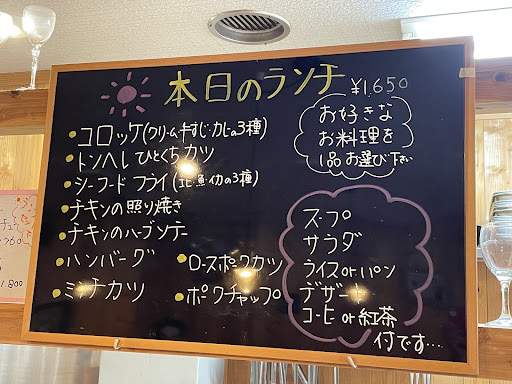 本日のランチ ¥1,650
お好きな
お料理を
1品お選び下さい
コロッケ(クリーム・牛すじ・カニの3種)
トンヘレひとくちカツ
シーフードフライ(エビ・魚・イカの3種)
チキンの照り焼き
チキンのハーブソテー
ハンバーグ
ロースポークカツ
ミンチカツ
ポークチャップ
スープ
サラダ
ライスorパン
デザート
コーヒーor紅茶
付です…
1,800